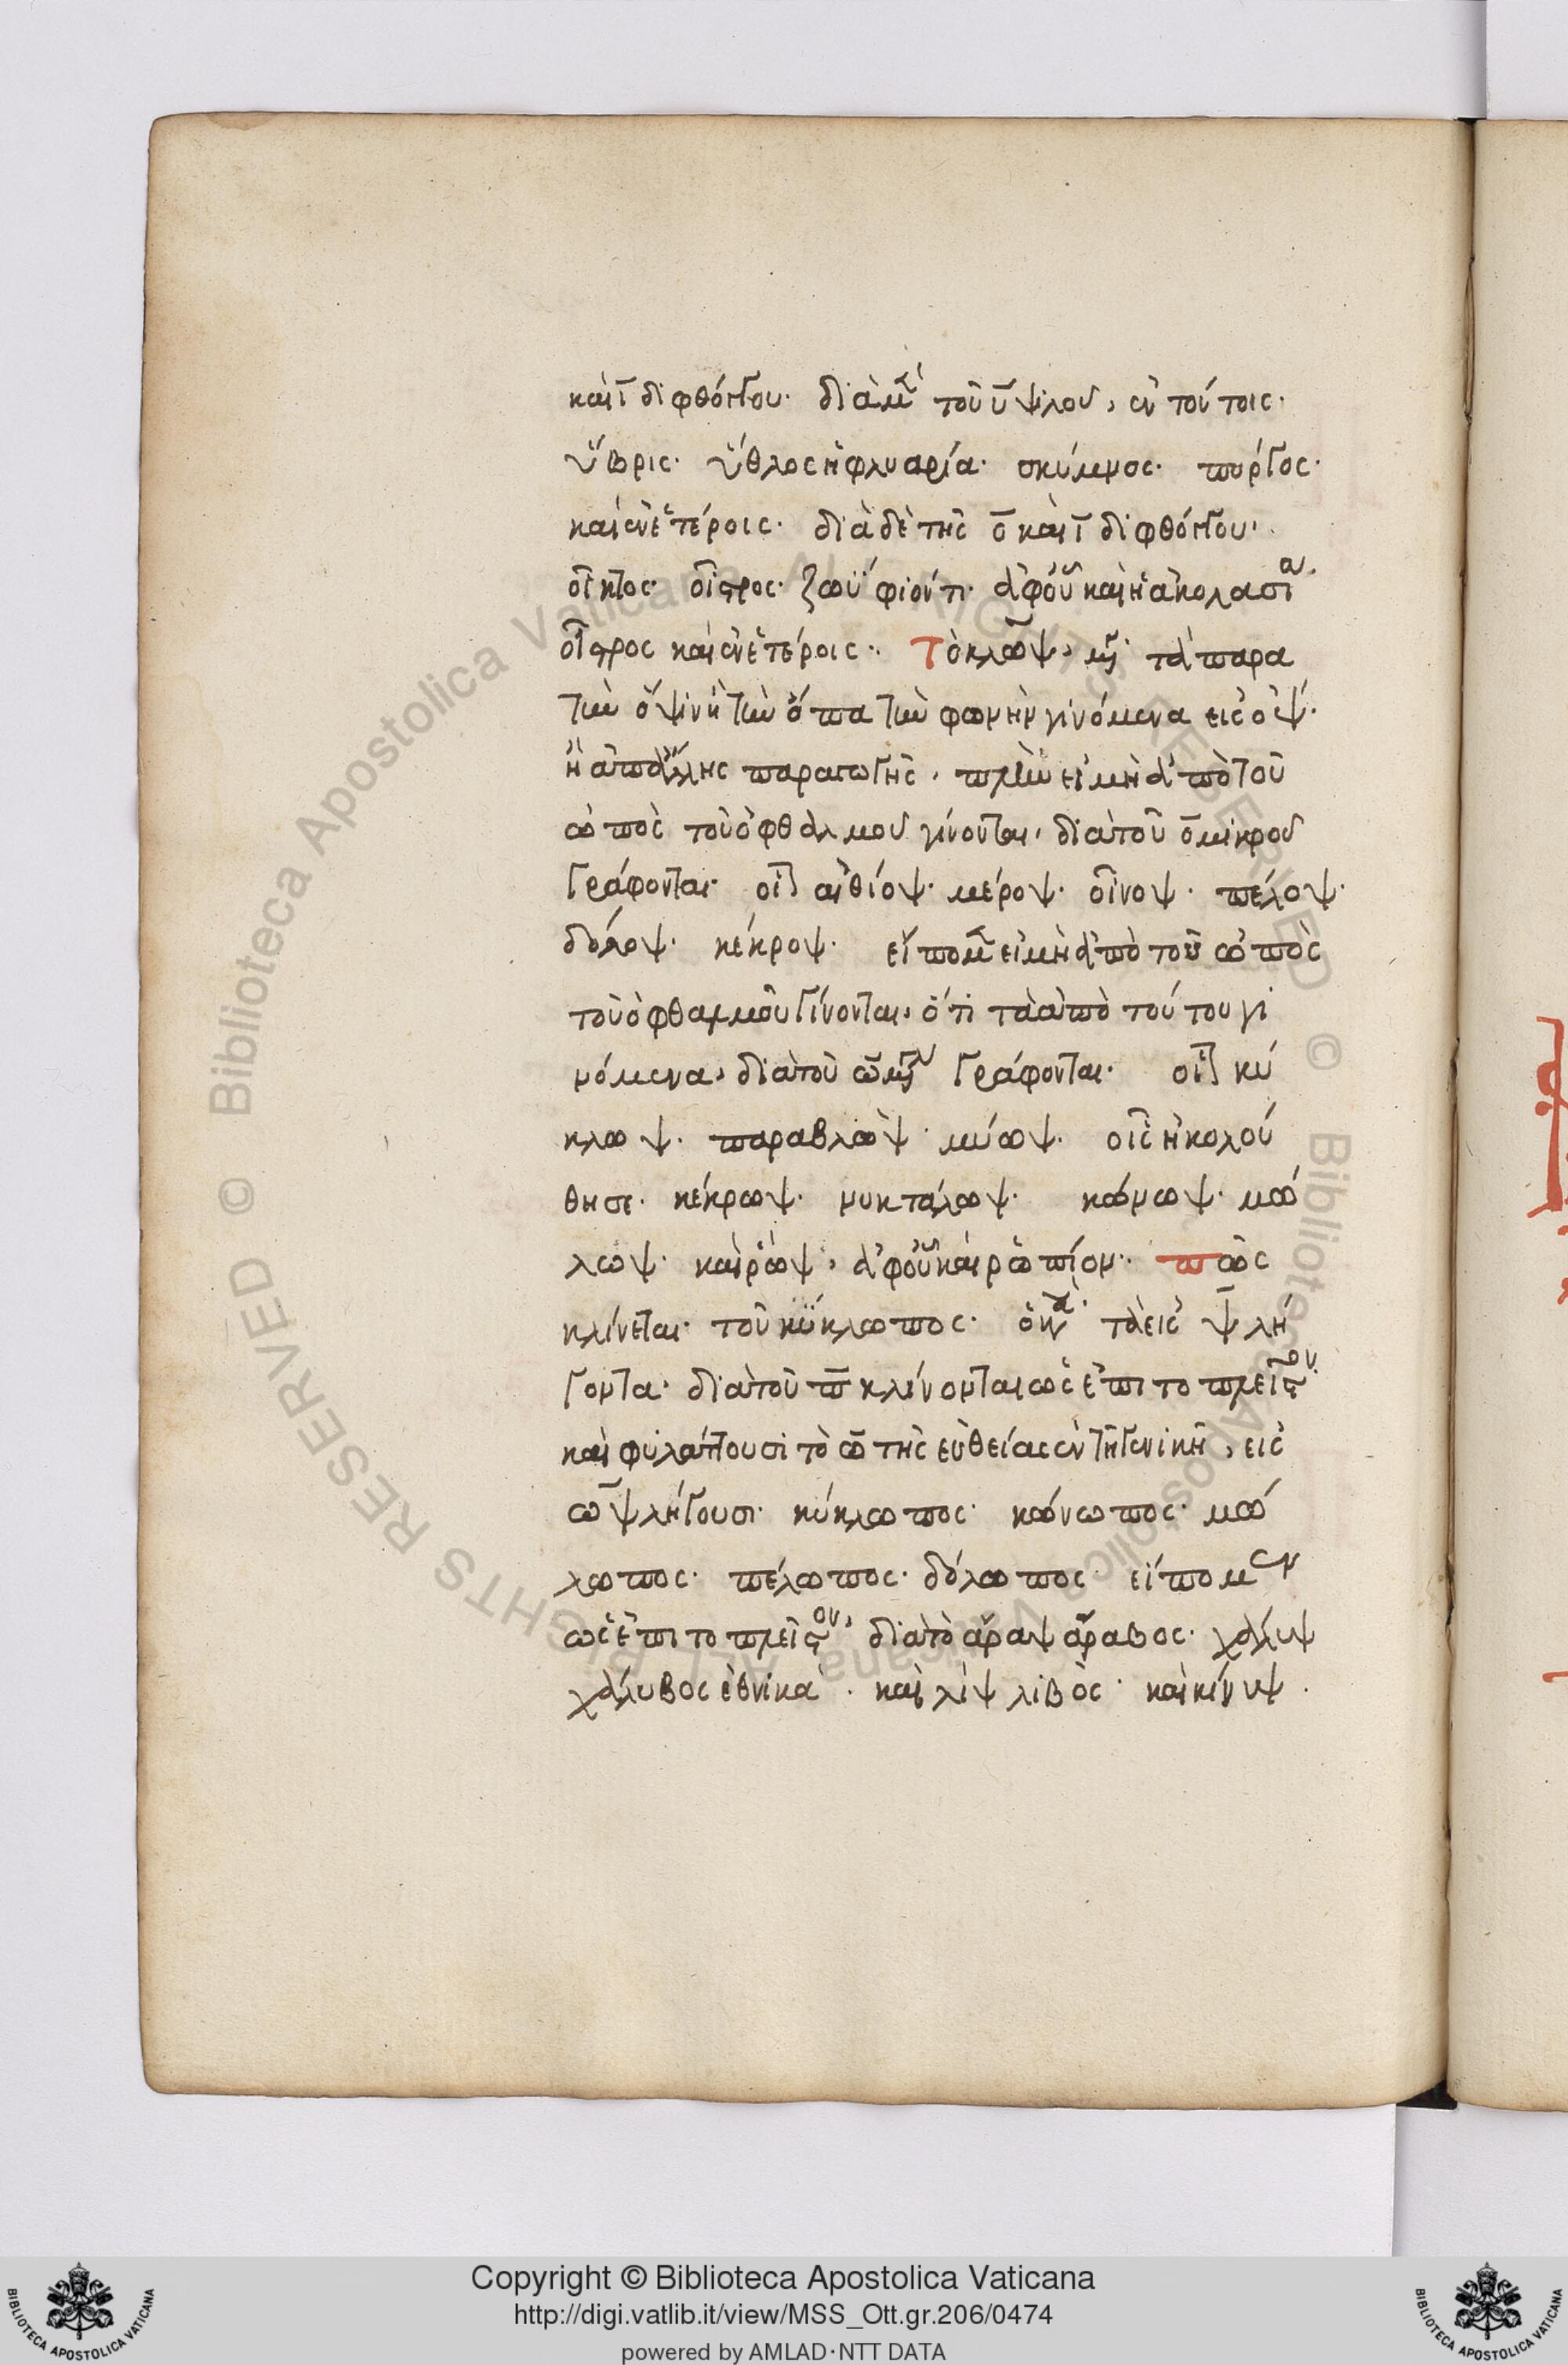 καὶ ῑ διφθόγγου· διὰ μ τοῦ ῡ ψιλοῦ, ἐν τούτοις·
ὕβρις· ὕθλος ἡ φλυαρία· σκύμνος· πύργος·
καὶ ἐν ἑτέροις· διὰ δὲ τῆς ο̄ καὶ ῑ διφθόγγου·
οἶκτος· οἶστρος· ζωΰφιόν τι· ἀφ' οὗ καὶ ἡ ἀκολασία·
οἶστρος καὶ ἐν ἑτέροις·· Τὸ κλωψ, τὰ παρα
τὴν ὄψιν ἢ τὴν ὄπα τὴν φωνὴν γινόμενα εἰς οψ·
ἢ ἀπ' ἄλλης παραγωγῆς, πλὴν εἰ μὴ ἀπὸ τοῦ
ὠπὸς τοῦ ὀφθαλμοῦ γίνονται, διὰ τοῦ ο̄ μικροῦ
γράφονται· οἷ αἰθίοψ· μέροψ· οἶνοψ· πέλοψ·
δόλοψ· κέκροψ· εἴπομ εἰ μὴ ἀπὸ τοῦ ὠπὸς
τοῦ ὀφθαλμοῦ γίνονται, ὅτι τὰ ἀπὸ τούτου γι
νόμενα, διὰ τοῦ ω̄ γράφονται· οἷ κύ
κλωψ· παραβλὼψ· μύωψ· οἷς ἠκολού
θησε· κέκρωψ· νυκτάλωψ· κώνωψ· μώ
λωψ· καὶ ῥώψ, ἀφ' οὗ καὶ ῥωπίον· πῶς
κλίνεται· τοῦ κύκλωπος· τὰ εἰς ψ̄ λή
γοντα· διὰ τοῦ π̄ κλίνονται ὡς ἐπι το πλεῖστον·
καὶ φυλάττουσι τὸ ω̄ τῆς εὐθείας ἐν τῇ γενικῇ, εἰς
ωψ λήγουσι· κύκλωπος· κώνωπος· μώ
λωπος· πέλωπος· δόλωπος· εἴπομεν
ὡς ἐπι το πλεῖστον, διὰ τὸ ἄραψ ἄραβος· χάλυψ
χάλυβος ἐθνικὰ· καὶ λὶψ λιβὸς· καὶ κίνυψ·
Copyright © Biblioteca Apostolica Vaticana
http://digi.vatlib.it/view/MSS_Ott.gr.206/0474
powered by AMLAD·NTT DATA